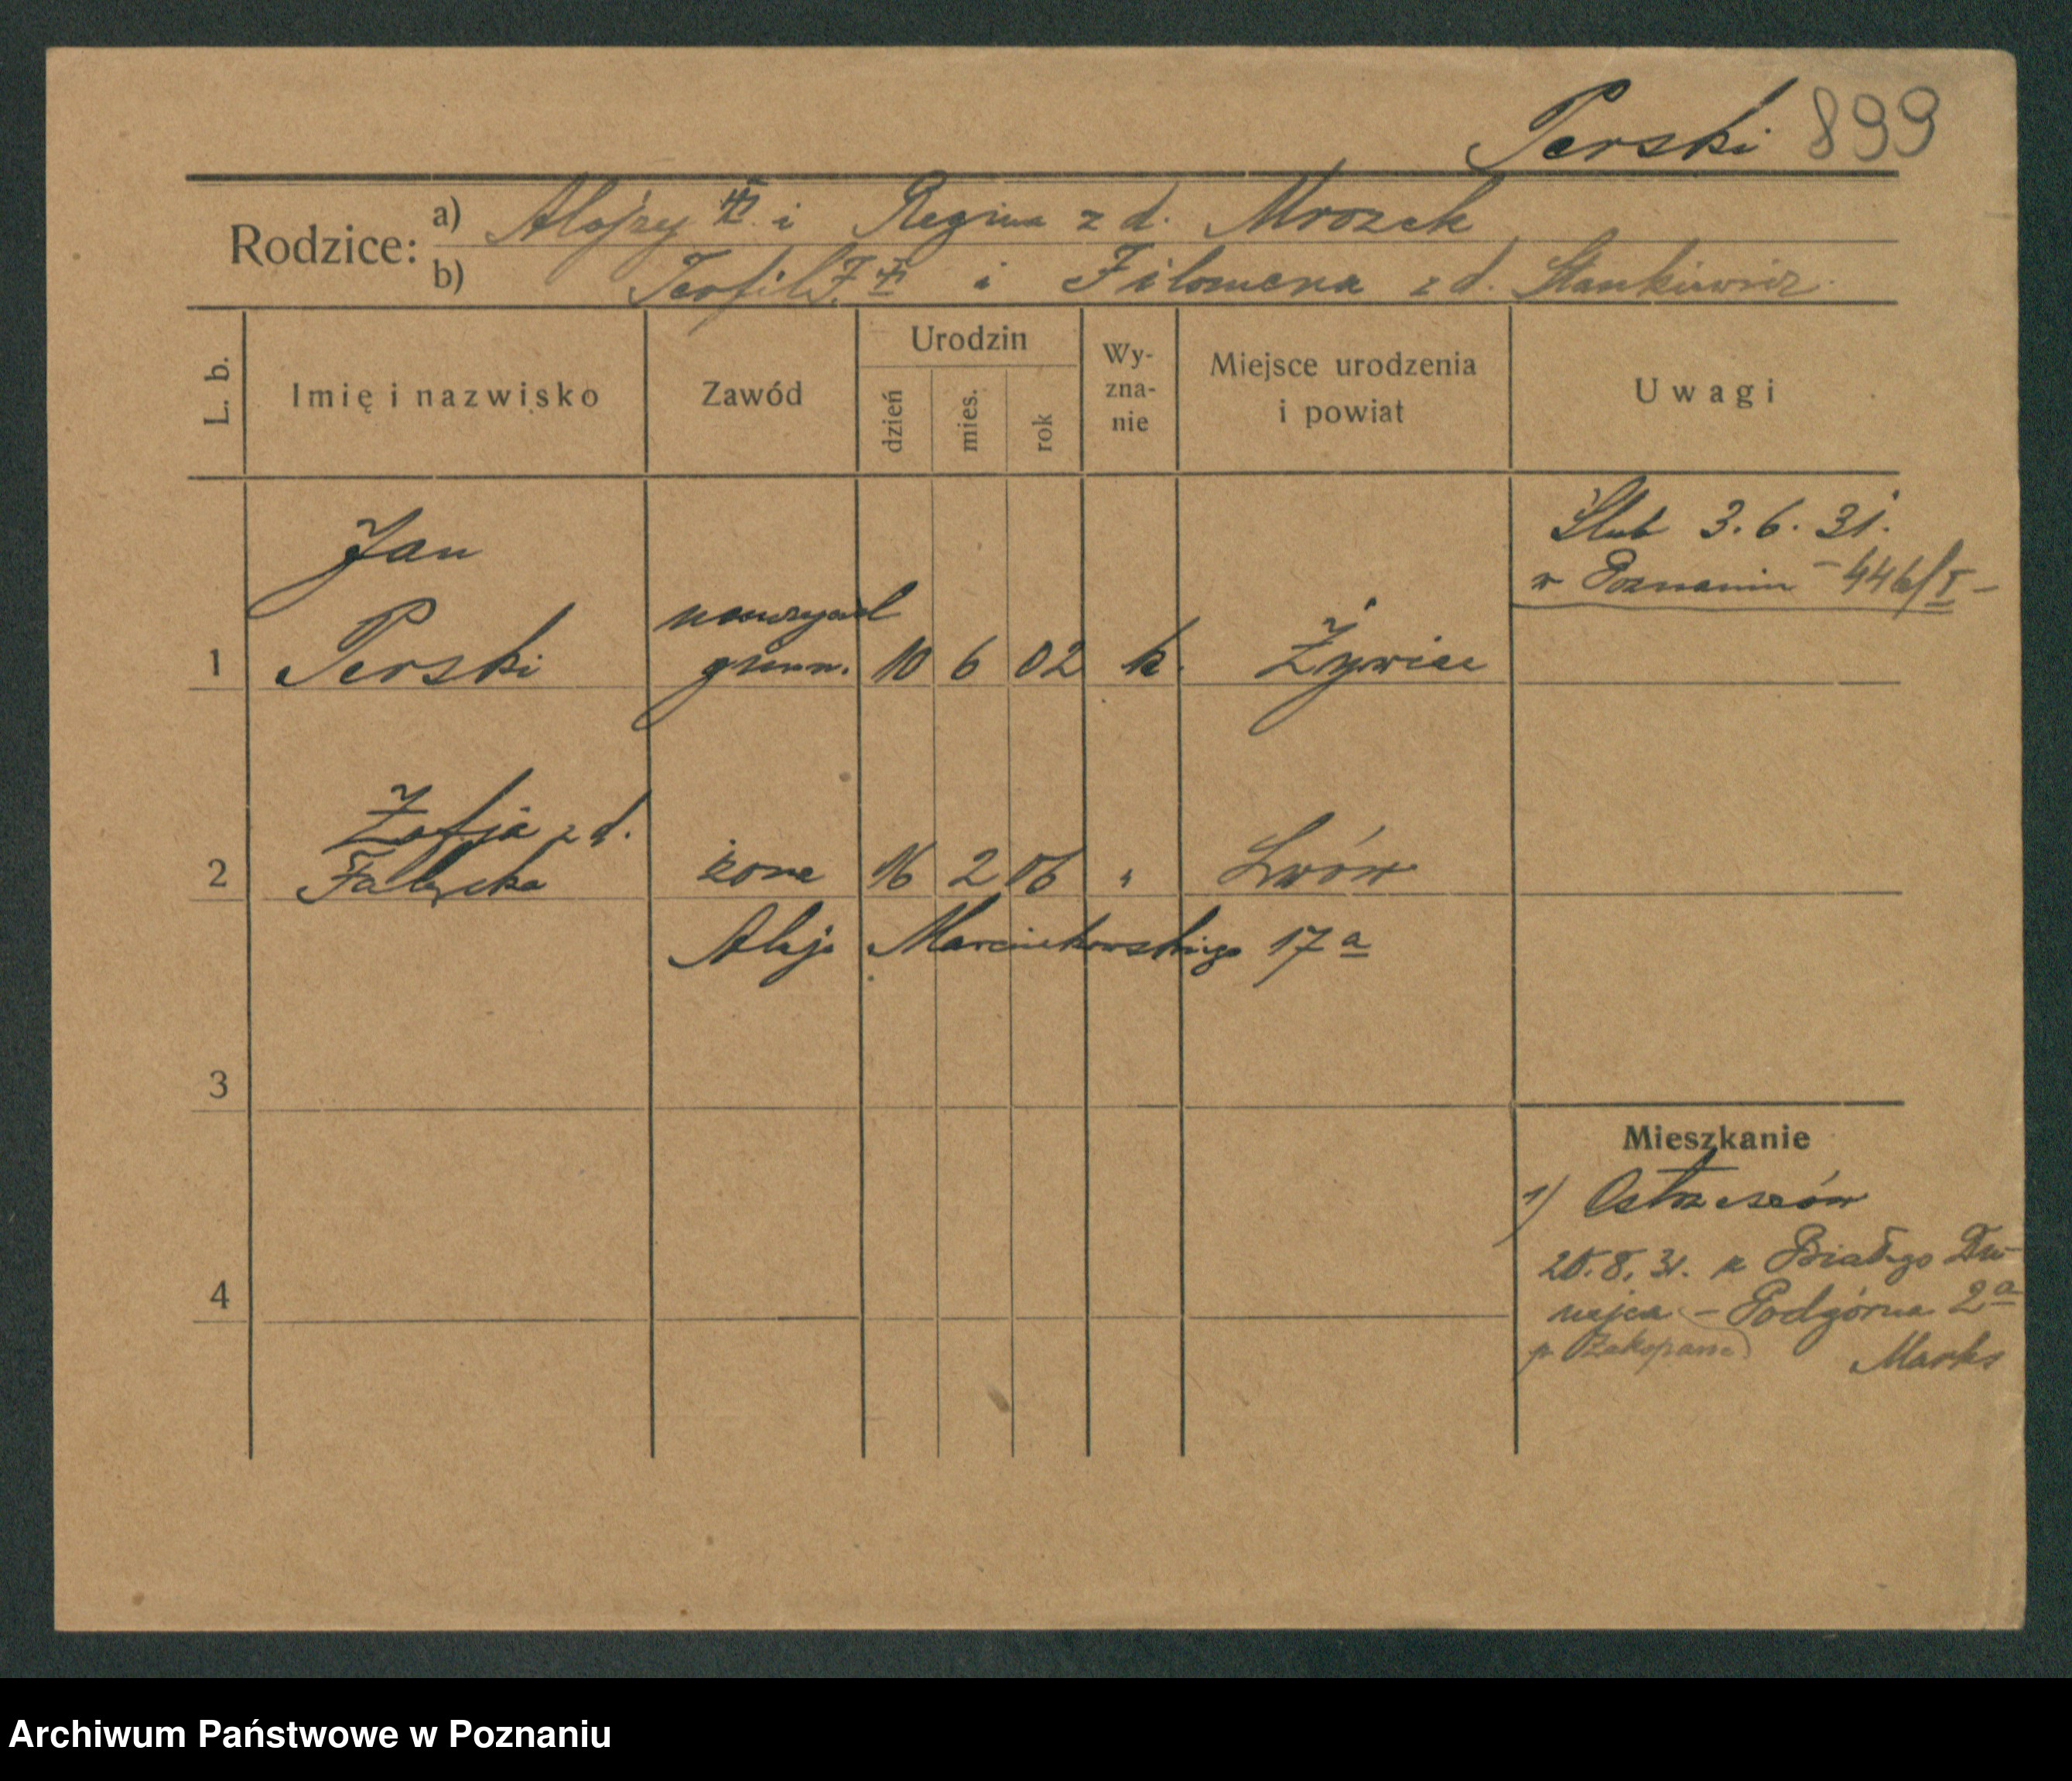 Perski 899
Rodzice:
a) Alojzy i Regina z d. Mrozek
b) Teofil i Filomena z d. Stankiewicz
L. b.
Imię i nazwisko
Zawód
Urodzin
dzień
mies.
rok
Wy-
zna-
nie
Miejsce urodzenia
i powiat
Uwagi
Ślub 3. 6. 31.
w Poznaniu – 446/I –
Jan
1 Perski
nauczyciel
gimn. 10 6 02 k. Żywiec
Zofja z d.
2 żona 16 2 06 " Lwów
Aleje Marcinkowskiego 17a
3
4
Mieszkanie
1) Ostrzeszów
8. 31. Białego Du-
najca – Podgórna 2a
p. Zakopane)
Marks
Archiwum Państwowe w Poznaniu